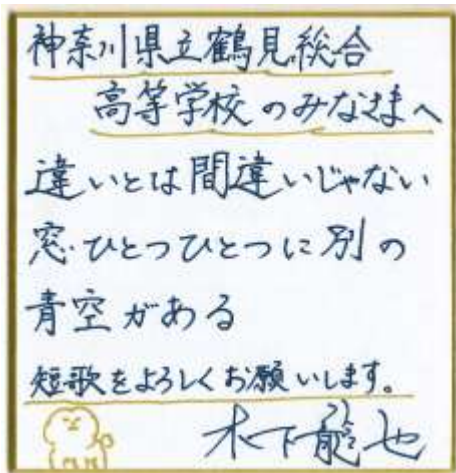 神奈川県立鶴見総合
高等学校のみなさまへ
違いとは間違いじゃない
窓ひとつひとつに別の
青空がある
短歌をよろしくお願いします。
木下龍也